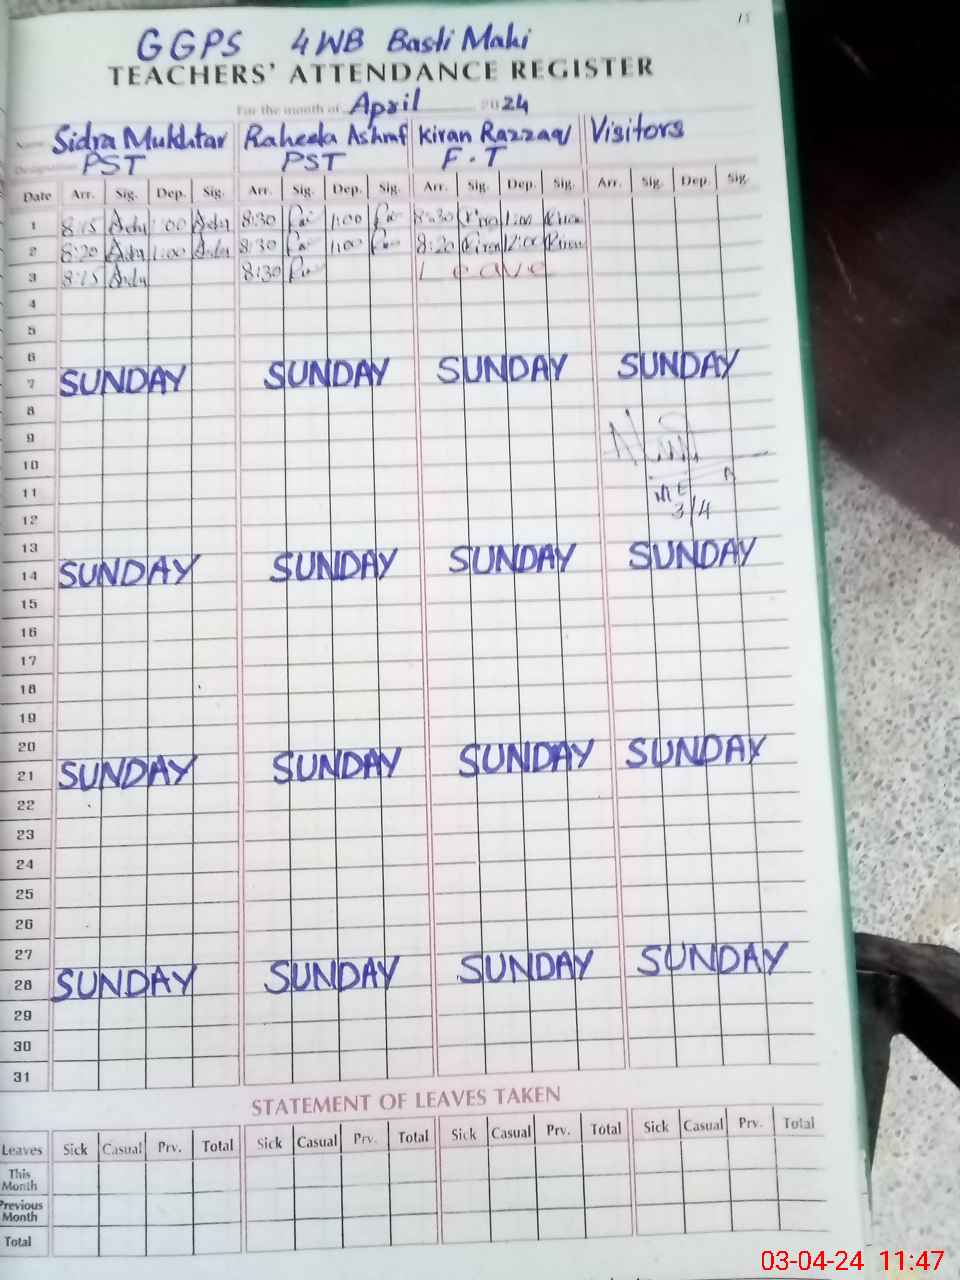 15
GGPS 4WB Basti Maki
TEACHERS' ATTENDANCE REGISTER
For the month of April 2024
Name Sidra Mukhtar Raheela Ashraf Kiran Razzaq Visitors
Designation PST PST F.T
Date Arr. Sig. Dep. Sig. Arr. Sig. Dep. Sig. Arr. Sig. Dep. Sig. Arr. Sig. Dep. Sig.
1 8:15 1:00 8:30 1:00 8:30 1:00 Kiran
2 8:20 1:00 8:30 1:00 8:20 Kiran 12:00 Kiran
3 8:15 8:30 Leave
4
5
6
7 SUNDAY SUNDAY SUNDAY SUNDAY
8
9
10
11
12 3/4
13
14 SUNDAY SUNDAY SUNDAY SUNDAY
15
16
17
18
19
20
21 SUNDAY SUNDAY SUNDAY SUNDAY
22
23
24
25
26
27
28 SUNDAY SUNDAY SUNDAY SUNDAY
29
30
31
STATEMENT OF LEAVES TAKEN
Leaves Sick Casual Prv. Total Sick Casual Prv. Total Sick Casual Prv. Total Sick Casual Prv. Total
This Month
Previous Month
Total
03-04-24 11:47